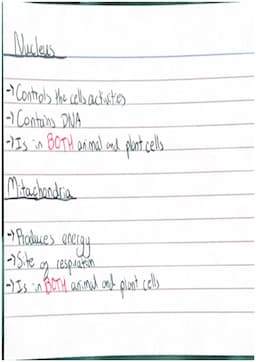 Nucleus
→ Controls the cells activities
→ Contains DNA
→ Is in BOTH animal and plant cells
Mitochondria
→ Produces energy
→ Site of respiration
→ Is in BOTH animal and plant cells